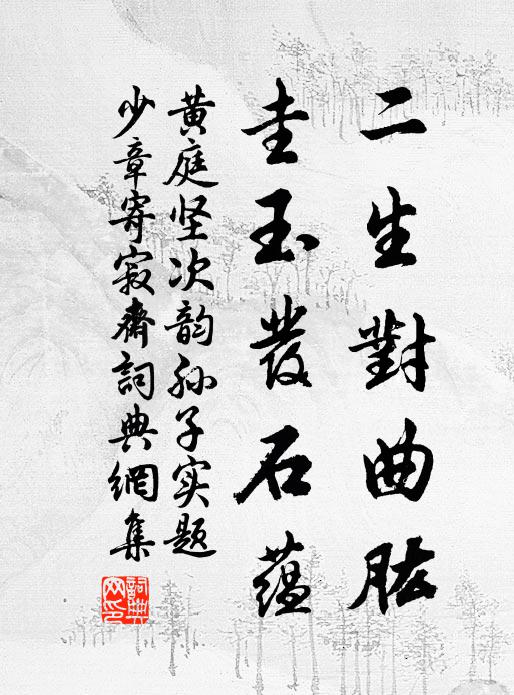 二生對曲肱
圭玉發石蘊
黄庭坚次韵孙子实题
少章寄寂斋詞典網集
詞典网印